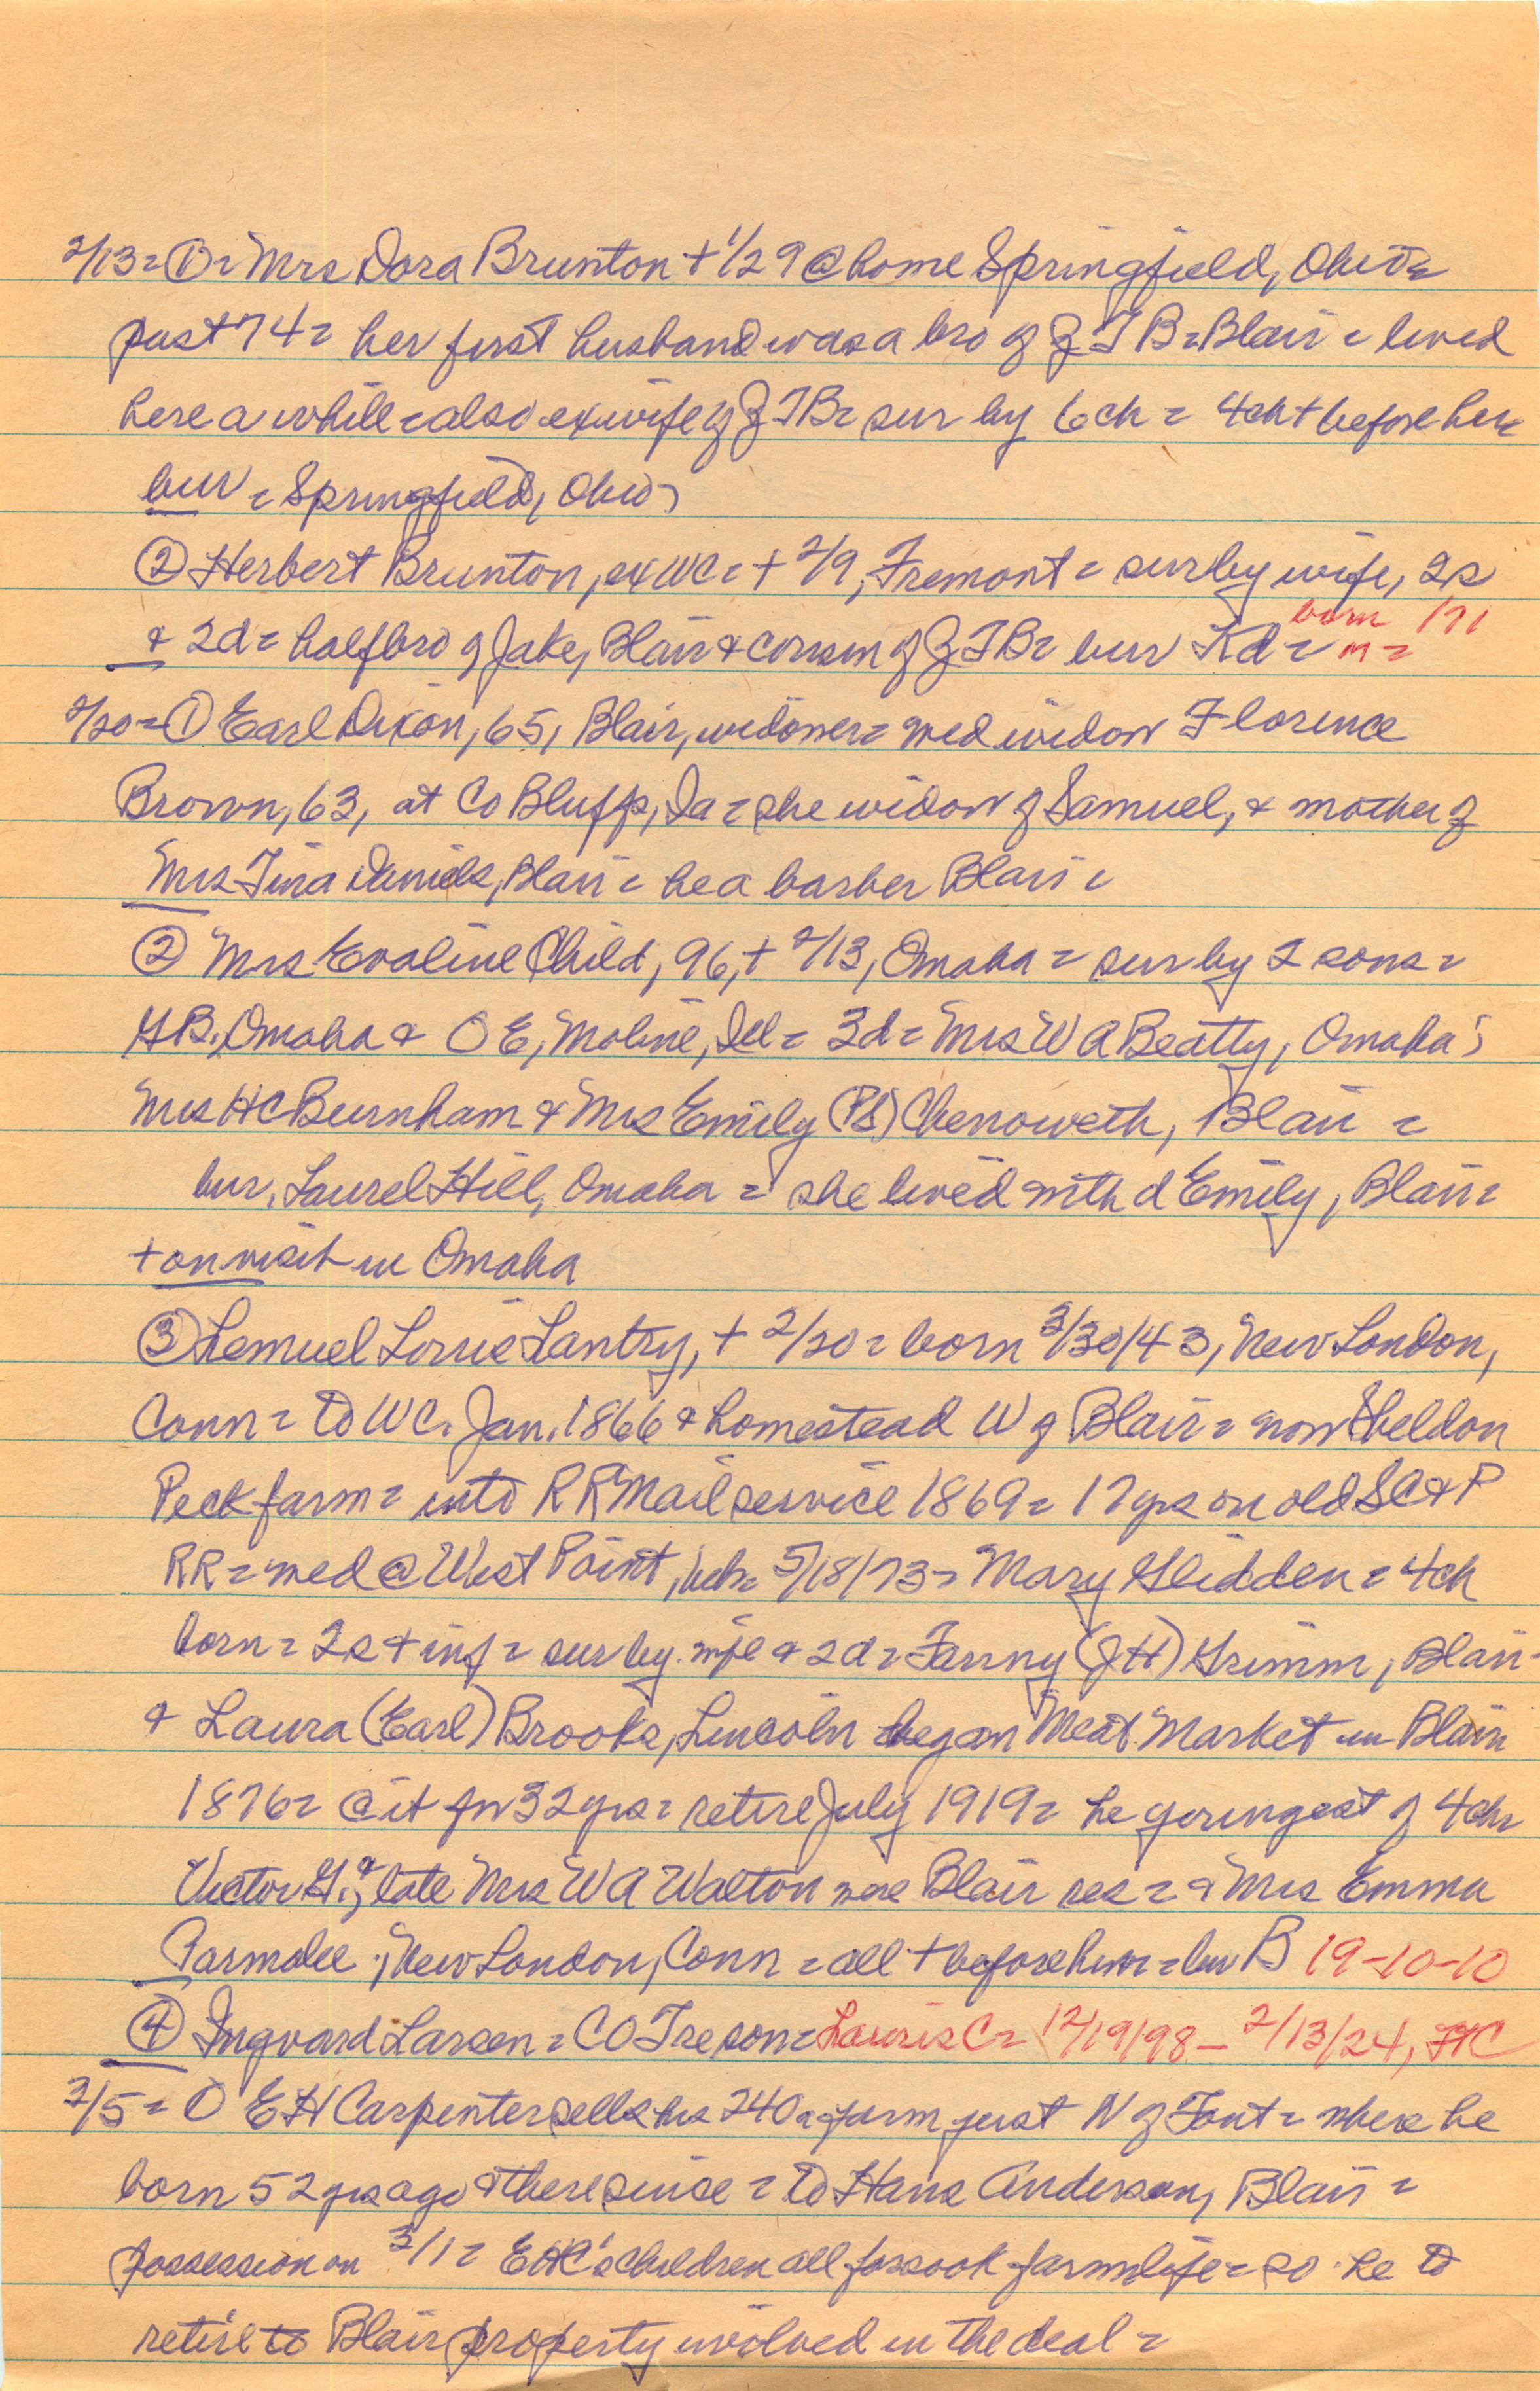 2/13 = ① = Mrs Dora Brunton + 1/29 @ home Springfield, Ohio =
past 74 = her first husband was a bro of J T B = Blair = lived
here a while = also exwife of J T B = sur by 6 ch = 4 ch + before her
bur = Springfield, Ohio
② Herbert Brunton, ex WC = + 2/9, Fremont = sur by wife, 2 s
& 2 d = half bro of Jake, Blair & cousin of J T B = bur Kd = born 171
m =
2/20 = ① Earl Dixon, 65, Blair, widower = med widow Florence
Brown, 63, at Co Bluffs, Ia = she widow of Samuel, & mother of
Mrs Tina Daniels, Blair = he a barber Blair =
② Mrs Evaline Child, 96, + 2/13, Omaha = sur by 2 sons =
G B, Omaha & O E, Moline, Ill = 3 d = Mrs W A Beatty, Omaha;
Mrs H C Burnham & Mrs Emily (PS) Chenoweth, Blair =
bur. Laurel Hill, Omaha = she lived with d Emily, Blair =
+ on visit in Omaha
③ Lemuel Lorrie Lantry, + 2/20 = born 3/30/43, New London,
Conn = to WC. Jan. 1866 & homestead W of Blair = now Sheldon
Peck farm = into RR Mail service 1869 = 17 yrs on old SC & P
RR = med @ West Point, Neb = 5/18/73 = Mary Glidden = 4 ch
born = 2 s + inf = sur by wife & 2 d = Fanny (J H) Grimm, Blair
& Laura (Earl) Brooks, Lincoln began Meat Market in Blair
1876 = @ it for 32 yrs = retire July 1919 = he youngest of 4 ch =
Victor G., & late Mrs W A Walton were Blair res = & Mrs Emma
Parmalee, New London, Conn = all + before him = bur B 19-10-10
④ Ingvard Larsen = CO Tre son = Lauris C = 12/19/98 - 2/13/24, FtC
3/5 = ① E H Carpenter sells his 240 a farm just N of Font = where he
born 52 yrs ago & there since = to Hans Anderson, Blair =
possession on 3/1 = EHC's children all forsook farm life = so he to
retire to Blair property involved in the deal =